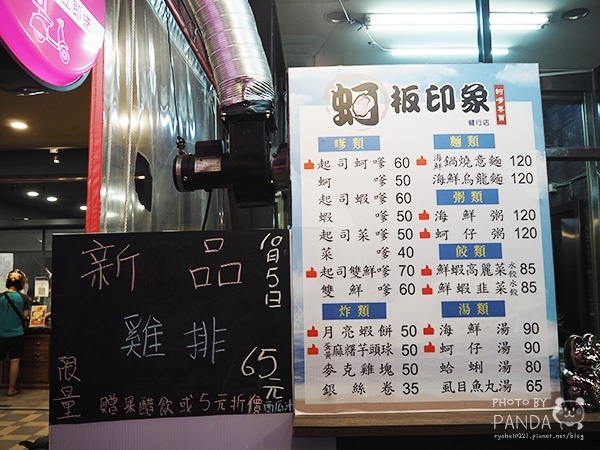 蚵板印象
蚵嗲專賣
健行店
嗲類
起司蚵嗲 60
蚵嗲 50
起司蝦嗲 60
蝦嗲 50
起司菜嗲 50
菜嗲 40
起司雙鮮嗲 70
雙鮮嗲 60
炸類
月亮蝦餅 50
蛋黃麻糬芋頭球 50
麥克雞塊 50
銀絲卷 35
麵類
海鮮鍋燒意麵 120
海鮮烏龍麵 120
粥類
海鮮粥 120
蚵仔粥 120
餃類
鮮蝦高麗菜水餃 85
鮮蝦韭菜水餃 85
湯類
海鮮湯 90
蚵仔湯 90
蛤蜊湯 80
虱目魚丸湯 65
新品
10月5日
雞排
65元
限量
贈果醋飲或5元折價
PHOTO BY
PANDA
ryohei0221.pixnet.net/blog